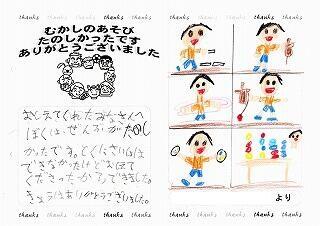 thanks thanks thanks thanks
むかしのあそび
たのしかったです
ありがとうございました
おしえてくれたみなさんへ
ぼくは、ぜんぶがたのし
かったです。とくに
できなかったけどおしえて
くださったからできました。
きょうはありがとうございました。
thanks thanks thanks thanks
thanks thanks thanks thanks
より
thanks thanks thanks thanks